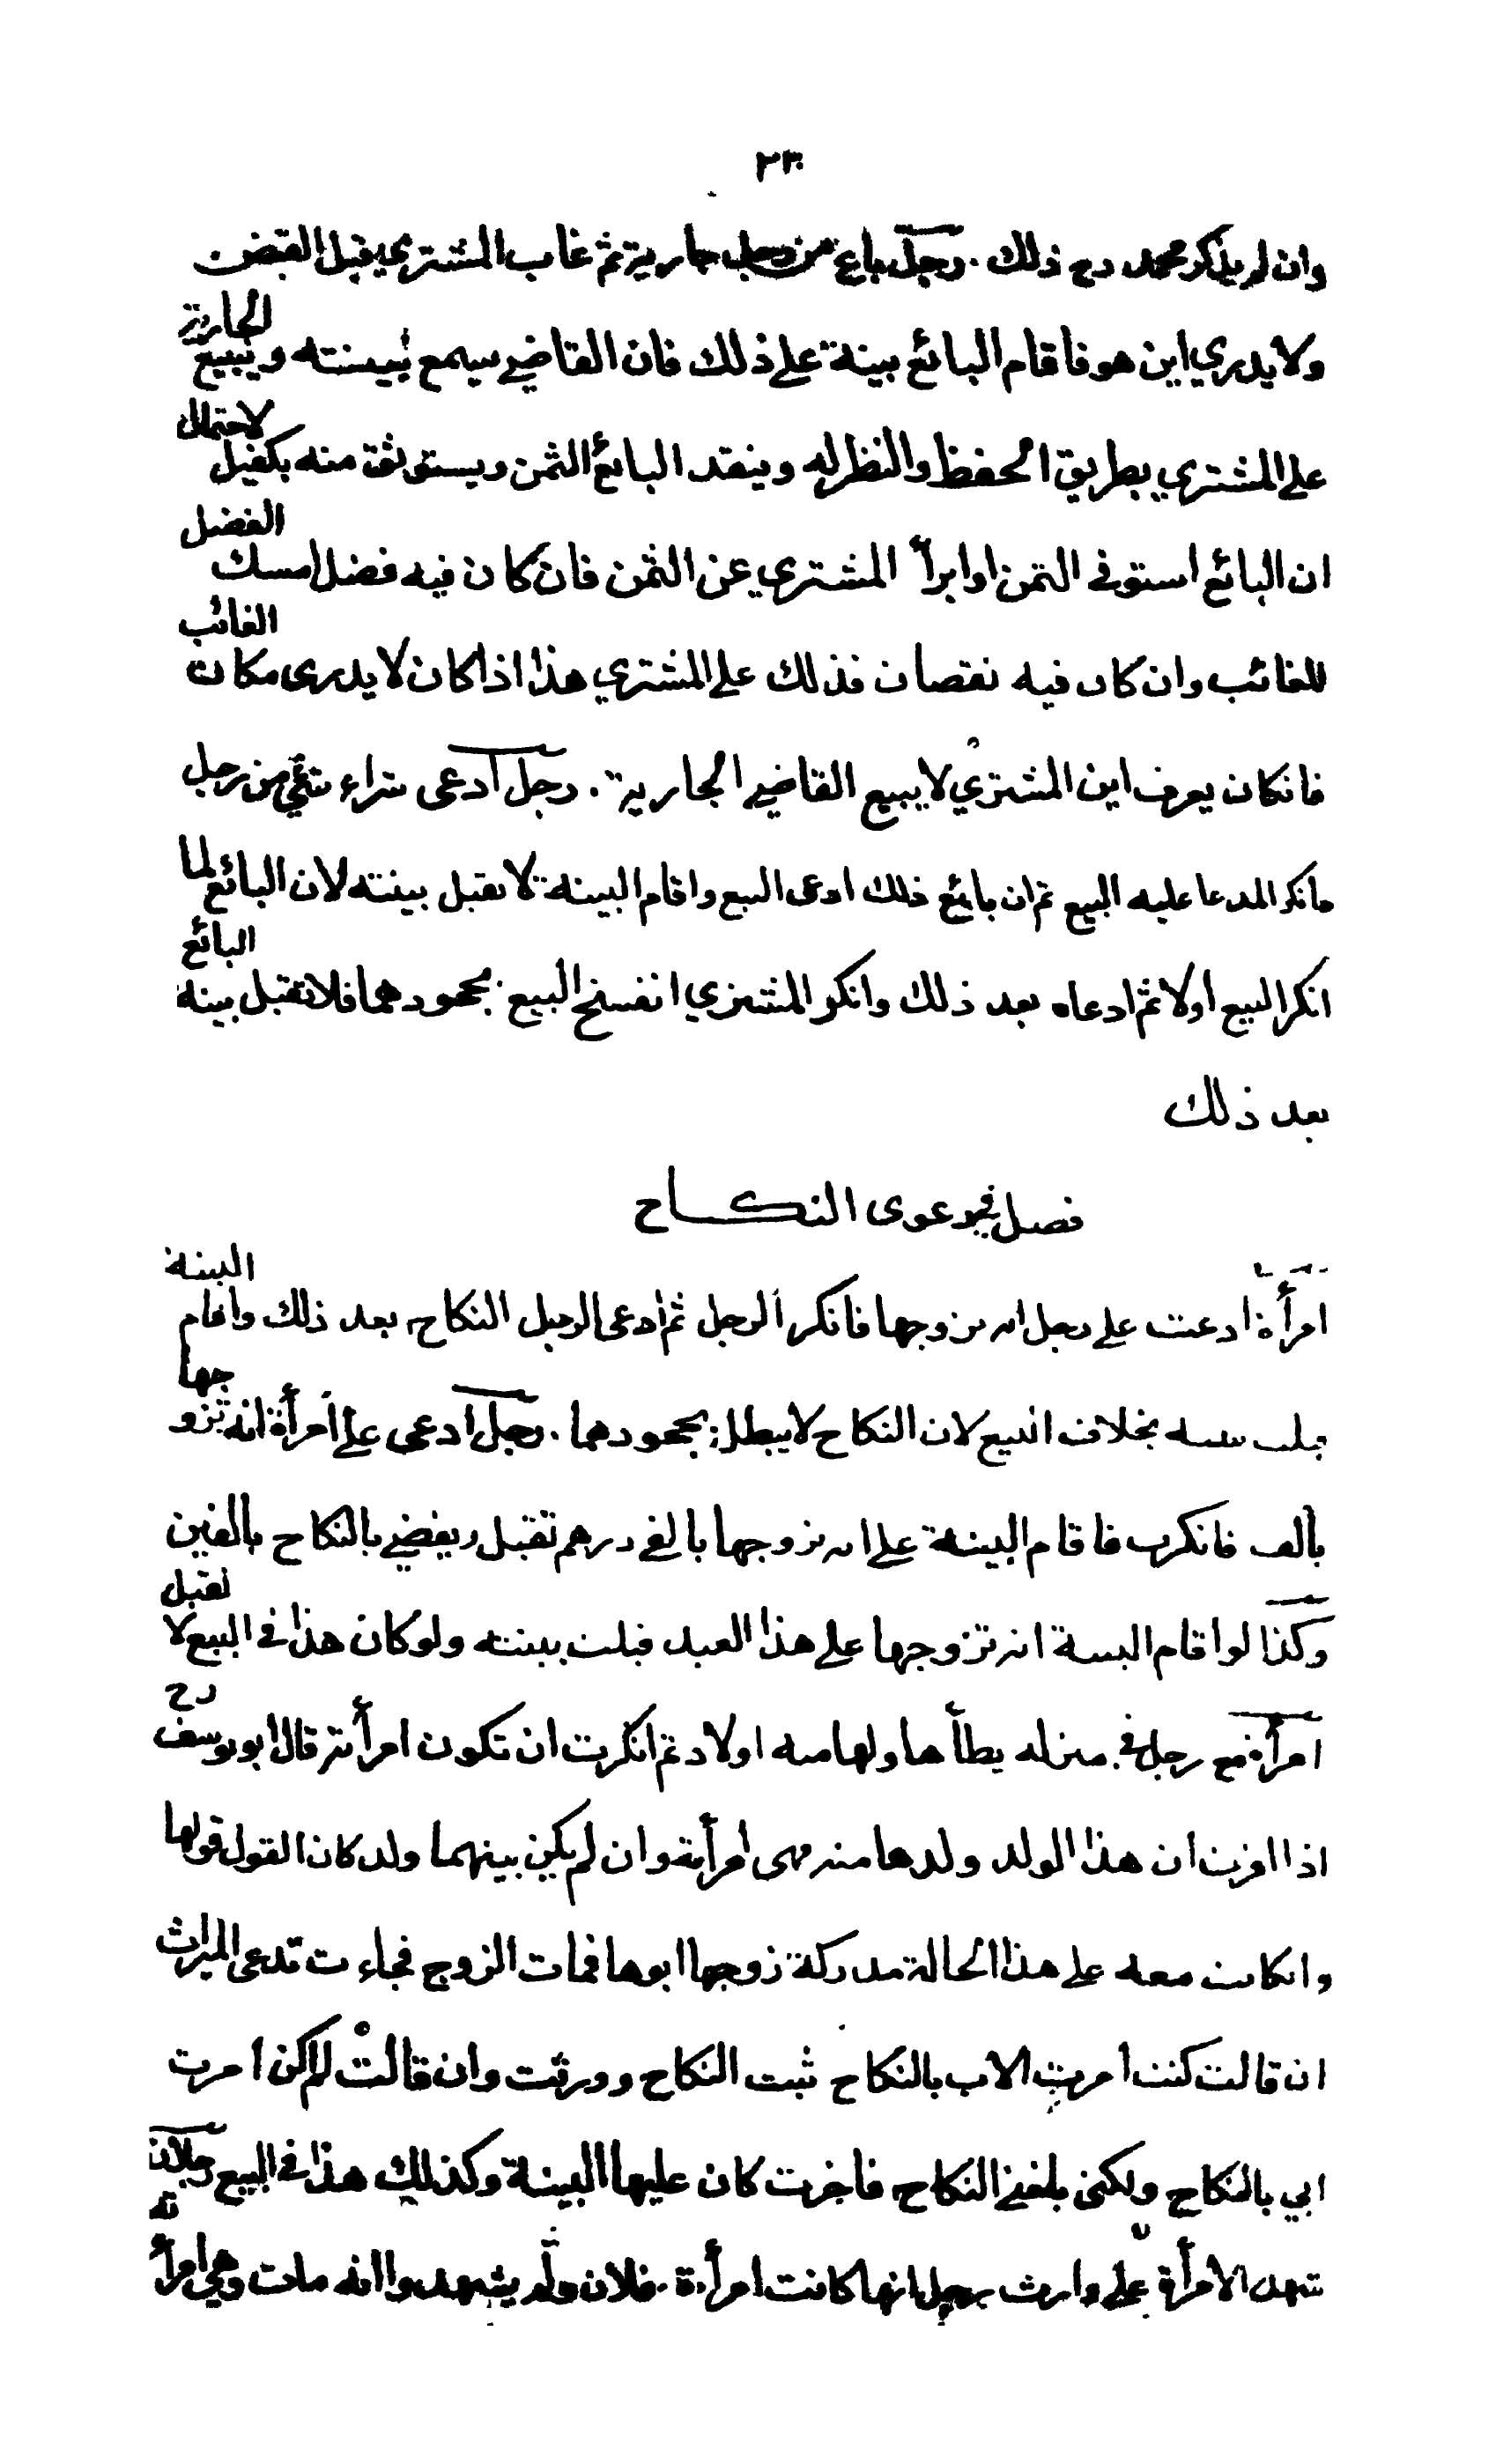 ٢٣٠
وان لم يذكر محمد رح ذلك . رجل باع من رجل جارية ثم غاب المشتري قبل القبض
ولا يدري اين هو فاقام البائع بينة على ذلك فان القاضي يسمع بينته ويبيع الجارية
على المشتري بطريق الحفظ والنظر له وينقد البائع الثمن ويستوثق منه بكفيل لاحتمال
ان البائع استوفى الثمن او ابرأ المشتري عن الثمن فان كان فيه فضل امسك الفضل
للغائب وان كان فيه نقصان فذلك على المشتري هذا اذا كان لا يدرى مكان الغائب
فانكان يعرف اين المشتري لا يبيع القاضي الجارية . رجل ادعى شراء شيء من رجل
فانكر المدعا عليه البيع ثم ان بائع ذلك ادعى البيع واقام البينة لا تقبل بينته لان البائع لما
انكر البيع اولا ثم ادعاه بعد ذلك وانكر المشتري انفسخ البيع بجحودهما فلا تقبل بينة البائع
بعد ذلك
فصل في دعوى النكاح
امرأة ادعت على رجل انه تزوجها فانكر الرجل ثم ادعى الرجل النكاح بعد ذلك واقام البينة
قبلت بينته بخلاف البيع لان النكاح لا يبطل بجحودهما . رجل ادعى على امرأة انه تزوجها
بالف فانكرت فاقام البينة على انه تزوجها بالفي درهم تقبل ويقضي بالنكاح بالفين
وكذا لو اقام البينة انه تزوجها على هذا العبد قبلت بينته ولو كان هذا في البيع لا تقبل
امرأة مع رجل في منزله يطأها ولها منه اولاد ثم انكرت ان تكون امرأته قال ابو يوسف رح
اذا اقرت ان هذا الولد ولدها منه فهى امرأته وان لم يكن بينهما ولد كان القول قولها
وانكانت معه على هذا الحالة مدركة زوجها ابوها فمات الزوج فجاءت تدعى الميراث
ان قالت كنت امرت الاب بالنكاح ثبت النكاح وورثت وان قالت لم اكن امرت
ابي بالنكاح ولكنى بلغني النكاح فاجزت كان عليها البينة وكذلك هذا في البيع رجلان
شهدا لامرأة على وارث رجل انها كانت امرأة فلان ولم يشهدوا انه مات وهي امرأته